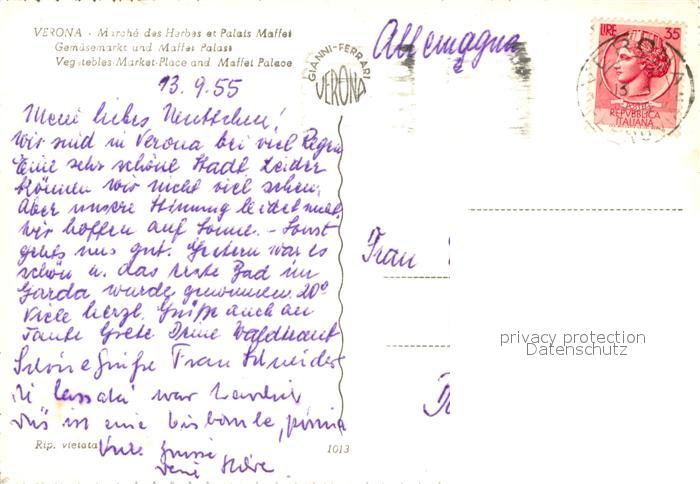 VERONA - Marché des Herbes et Palais Maffei
Gemüsemarkt und Maffei Palast
Vegetables-Market-Place and Maffei Palace
GIANNI-FERRARI
VERONA
Allemagna
LIRE 35
REPVBBLICA
ITALIANA
13.9.55
Mein liebes
Wir sind in Verona bei viel Regen
Eine sehr schöne Stadt. Leider
können wir nicht viel sehen.
Aber unsere Stimmung leidet nicht.
Wir hoffen auf Sonne. - Sonst
gehts uns gut. Gestern war es
schön u. das erste Bad im
Garda wurde genommen. 20°
Viele herzl. Grüße auch an
Tante Grete Deine Waldtraut
Schöne Grüße Frau Schneider
war
ist eine
Frau
privacy protection
Datenschutz
Rip. vietata
1013